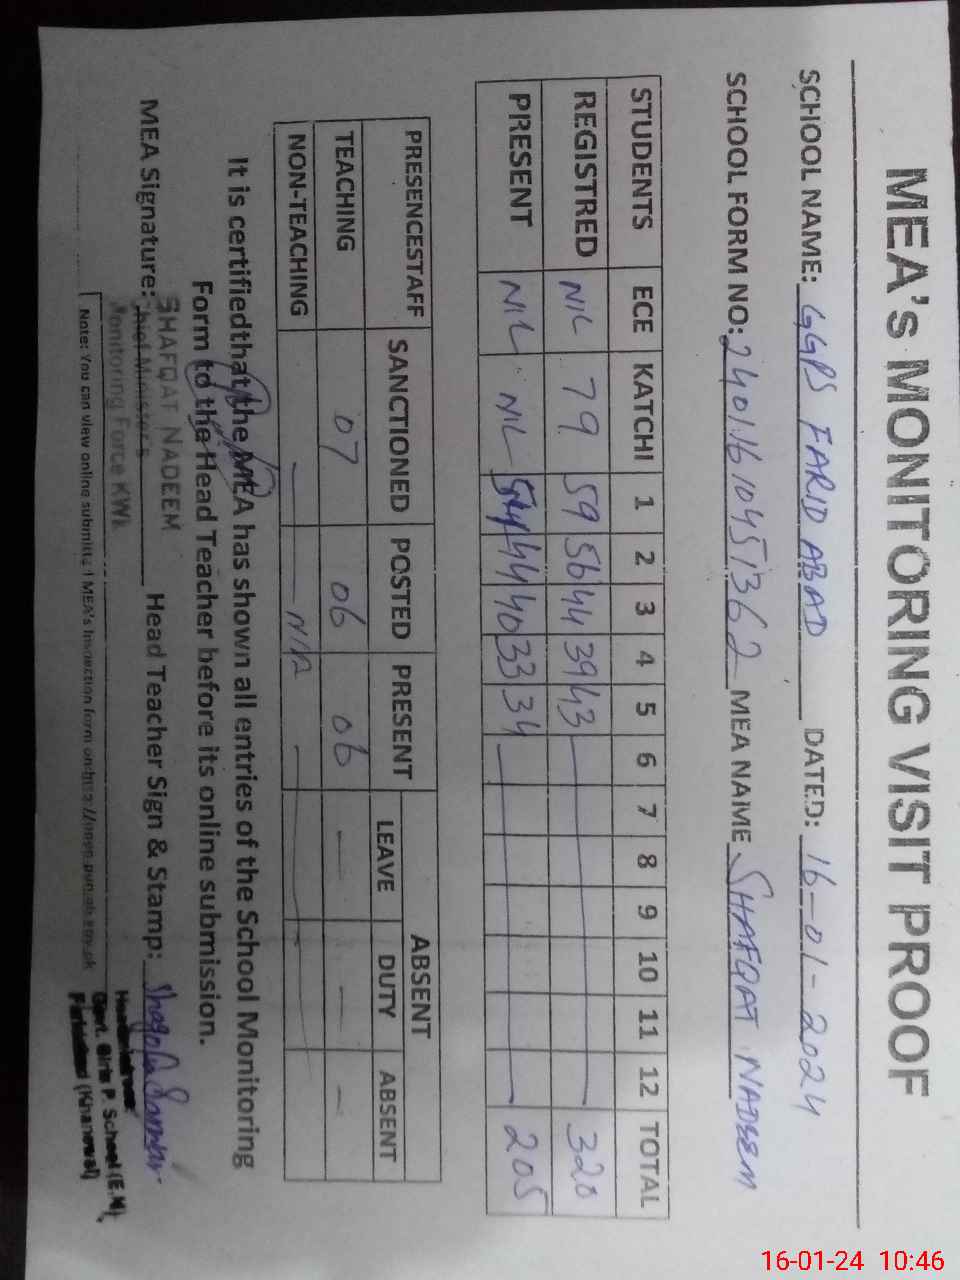 MEA's MONITORING VISIT PROOF
SCHOOL NAME: GGPS FARID ABAD DATED: 16-01-2024
SCHOOL FORM NO: 24011610451362 MEA NAME SHAFQAT NADEEM
STUDENTS ECE KATCHI 1 2 3 4 5 6 7 8 9 10 11 12 TOTAL
REGISTRED NIL 79 59 56 44 39 43 320
PRESENT NIL NIL 54 44 40 33 34 205
PRESENCESTAFF SANCTIONED POSTED PRESENT ABSENT
LEAVE DUTY ABSENT
TEACHING 07 06 06 — — —
NON-TEACHING — — NIL —
It is certifiedthat the MEA has shown all entries of the School Monitoring
Form to the Head Teacher before its online submission.
MEA Signature: Head Teacher Sign & Stamp:
SHAFQAT NADEEM
Chief Minister's
Monitoring Force KWL
Headmistress
Govt. Girls P. School (E.M)
Faridabad (Khanewal)
Note: You can view online submitted MEA's Inspection form on
16-01-24 10:46